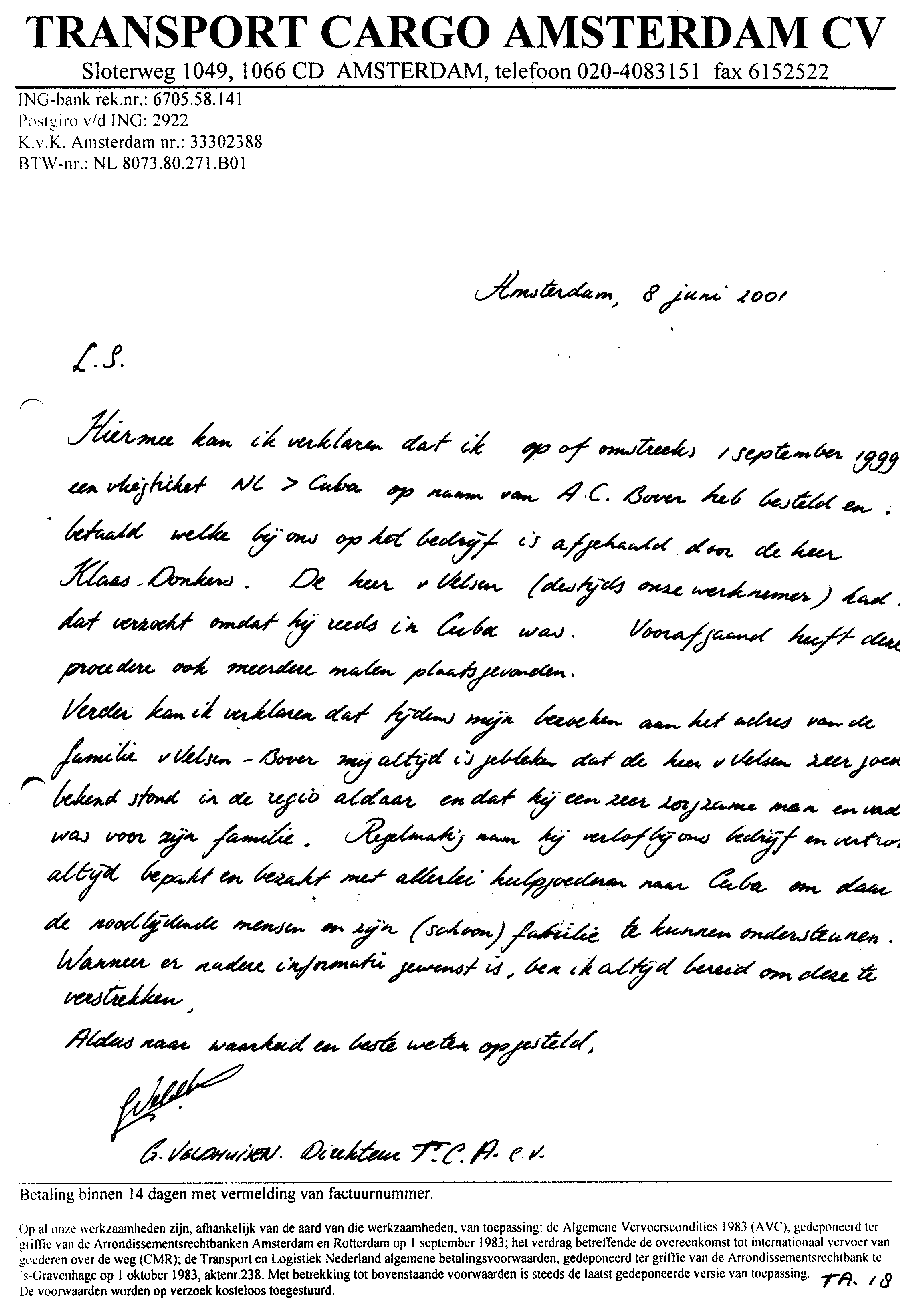 TRANSPORT CARGO AMSTERDAM CV
Sloterweg 1049, 1066 CD AMSTERDAM, telefoon 020-4083151 fax 6152522
ING-bank rek.nr.: 6705.58.141
Postgiro v/d ING: 2922
K.v.K. Amsterdam nr.: 33302388
BTW-nr.: NL 8073.80.271.B01
Amsterdam, 8 juni 2001
L.S.
Hiermee kan ik verklaren dat ik op of omstreeks 1 september 1999
een vliegticket NL > Cuba op naam van A.C. Bover heb besteld en
betaald welke bij ons op het bedrijf is afgehaald door de heer
Klaas Donkers. De heer v Velsen (destijds onze werknemer) had
dat verzocht omdat hij reeds in Cuba was. Voorafgaand heeft deze
procedere ook meerdere malen plaatsgevonden.
Verder kan ik verklaren dat tijdens mijn bezoeken aan het adres van de
familie v Velsen - Bover mij altijd is gebleken dat de heer v Velsen zeer goed
bekend stond in de regio aldaar en dat hij een zeer zorgzame man en vad
was voor zijn familie. Regelmatig nam hij verlof bij ons bedrijf en vertro
altijd bepakt en bezakt met allerlei hulpgoederen naar Cuba om daar
de noodlijdende mensen en zijn (schoon) familie te kunnen ondersteunen.
Wanneer er nadere informatie gewenst is, ben ik altijd bereid om deze te
verstrekken,
Aldus naar waarheid en beste weten opgesteld,
G. VELDHUISEN. Direkteur T.C.A. c.v.
Betaling binnen 14 dagen met vermelding van factuurnummer.
Op al onze werkzaamheden zijn, afhankelijk van de aard van die werkzaamheden, van toepassing: de Algemene Vervoerscondities 1983 (AVC), gedeponeerd ter
griffie van de Arrondissementsrechtbanken Amsterdam en Rotterdam op 1 september 1983; het verdrag betreffende de overeenkomst tot internationaal vervoer van
goederen over de weg (CMR); de Transport en Logistiek Nederland algemene betalingsvoorwaarden, gedeponeerd ter griffie van de Arrondissementsrechtbank te
's-Gravenhage op 1 oktober 1983, aktenr.238. Met betrekking tot bovenstaande voorwaarden is steeds de laatst gedeponeerde versie van toepassing.
De voorwaarden worden op verzoek kosteloos toegestuurd.
TA. 18